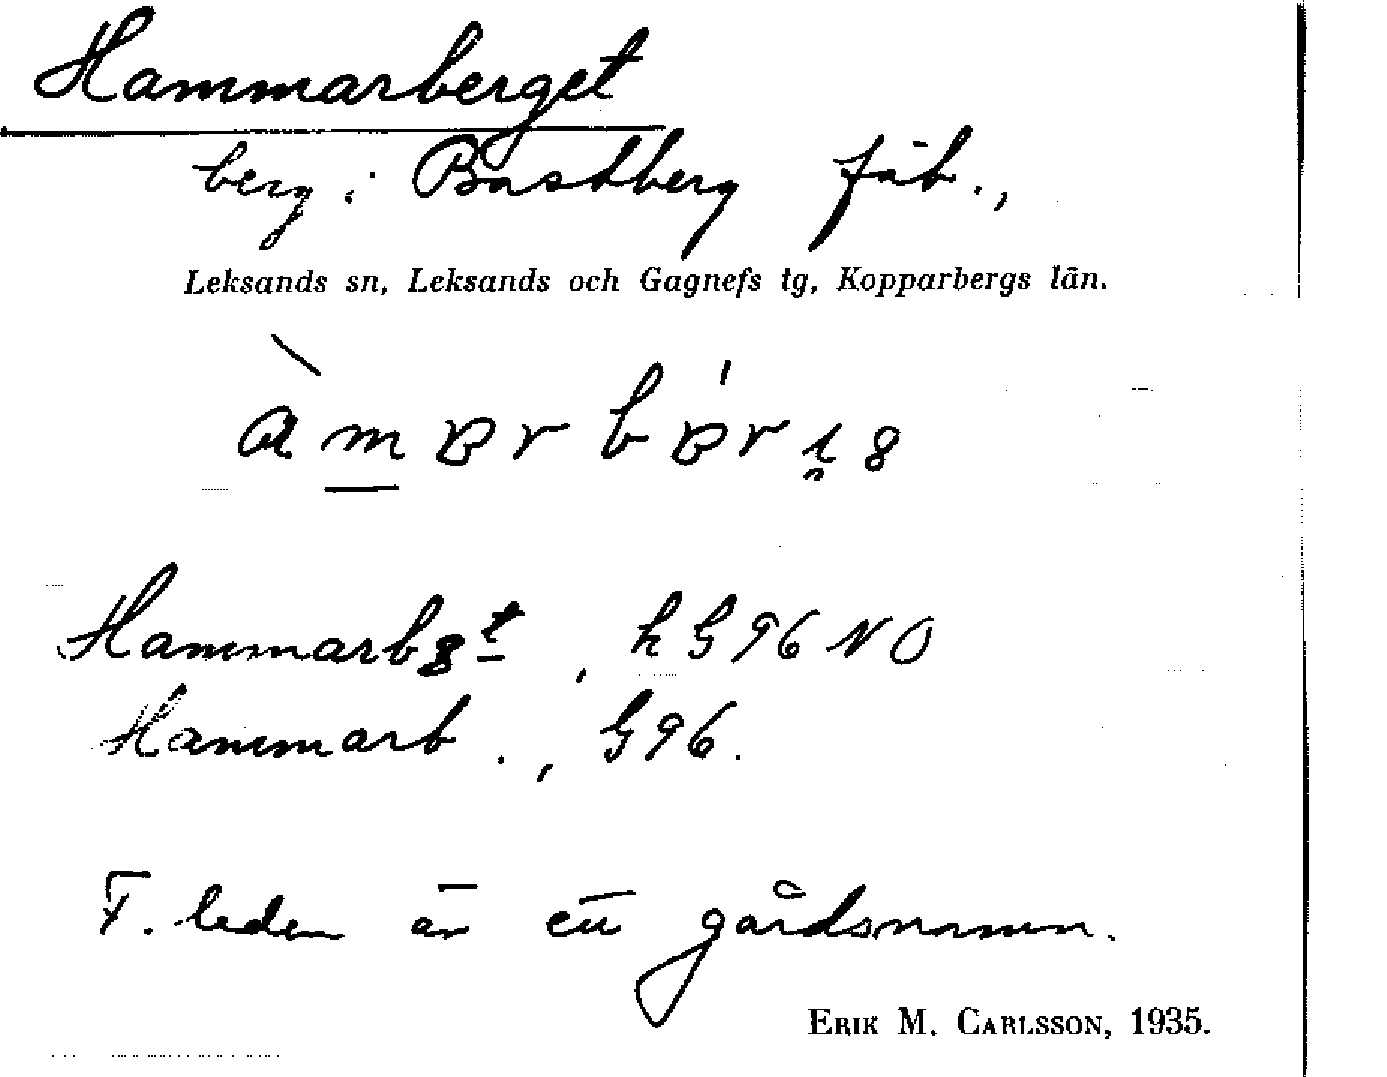 Hammarberget
berg i Bastberg fäb.,
Leksands sn, Leksands och Gagnefs tg, Kopparbergs län.
Hammarbgt, hG96NO
Hammarb., G96.
F. leden är ett gårdsnamn.
ERIK M. CARLSSON, 1935.